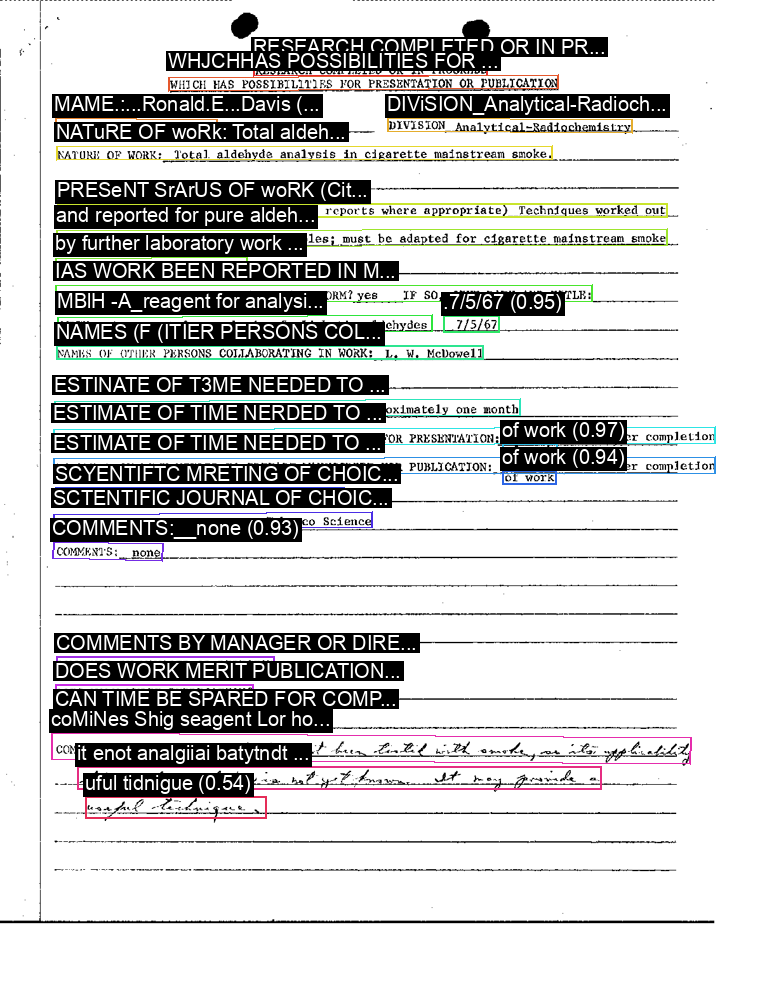 RESEARCH COMPLETED OR IN PR...
WHJCHHAS POSSIBILITIES FOR ...
WHICH HAS POSSIBILITIES FOR PRESENTATION OR PUBLICATION
MAME.:...Ronald.E...Davis (... DIViSION_Analytical-Radioch...
NATuRE OF woRk: Total aldeh... DIVISION Analytical-Radiochemistry
NATURE OF WORK: Total aldehyde analysis in cigarette mainstream smoke.
PRESeNT SrArUS OF woRK (Cit...
and reported for pure aldeh... reports where appropriate) Techniques worked out
by further laboratory work ... les; must be adapted for cigarette mainstream smoke
IAS WORK BEEN REPORTED IN M...
MBIH -A_reagent for analysi... ORM? yes IF SO, .7/5/67 (0.95) TLE:
NAMES (F (ITIER PERSONS COL... dehydes 7/5/67
NAMES OF OTHER PERSONS COLLABORATING IN WORK: L. W. McDowell
ESTINATE OF T3ME NEEDED TO ...
ESTIMATE OF TIME NERDED TO ... oximately one month
ESTIMATE OF TIME NEEDED TO ... FOR PRESENTATION: of work (0.97) er completion
SCYENTIFTC MRETING OF CHOIC... PUBLICATION: of work (0.94) er completion
of work
SCTENTIFIC JOURNAL OF CHOIC...
COMMENTS:__none (0.93) co Science
COMMENTS: none
COMMENTS BY MANAGER OR DIRE...
DOES WORK MERIT PUBLICATION...
CAN TIME BE SPARED FOR COMP...
coMiNes Shig seagent Lor ho...
COM it enot analgiiai batytndt ... t been tested with smoke, so its applicability
uful tidnigue (0.54) is not yet known. It may provide a
useful technique.